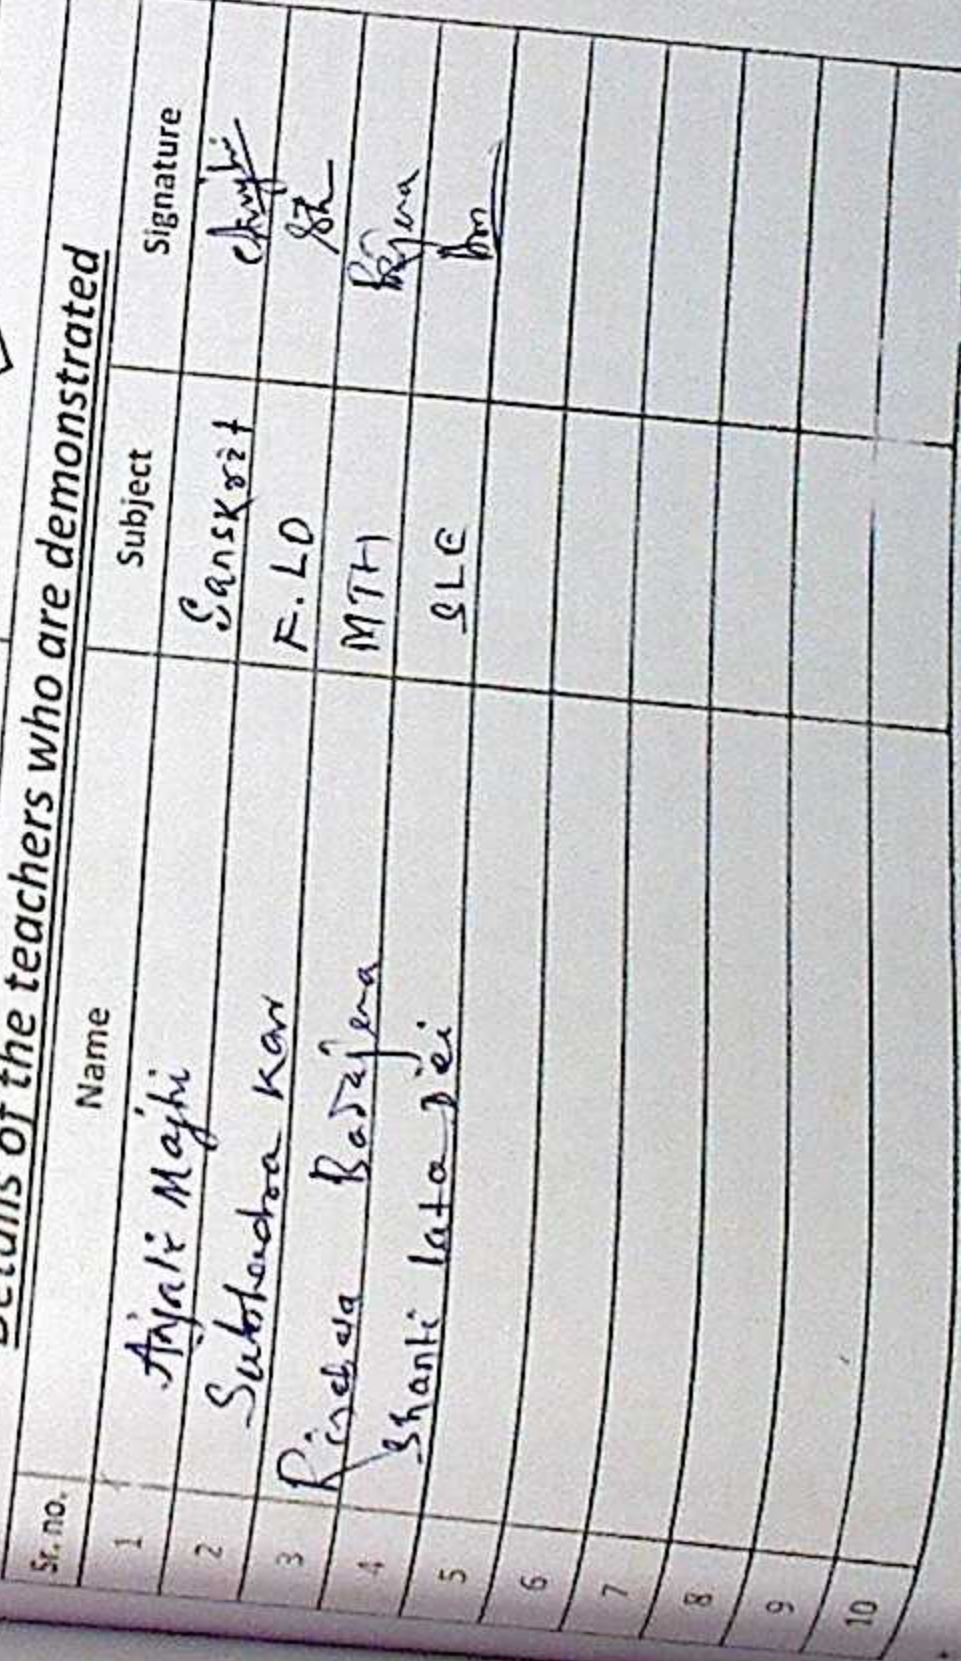 Details of the teachers who are demonstrated
Sr. no. Name Subject Signature
1 Anjali Majhi Sanskrit
2 Subhendra Kar F. LD
3 Badajena MTH Bajena
4 Shanti lata Dei SLE
5
6
7
8
9
10